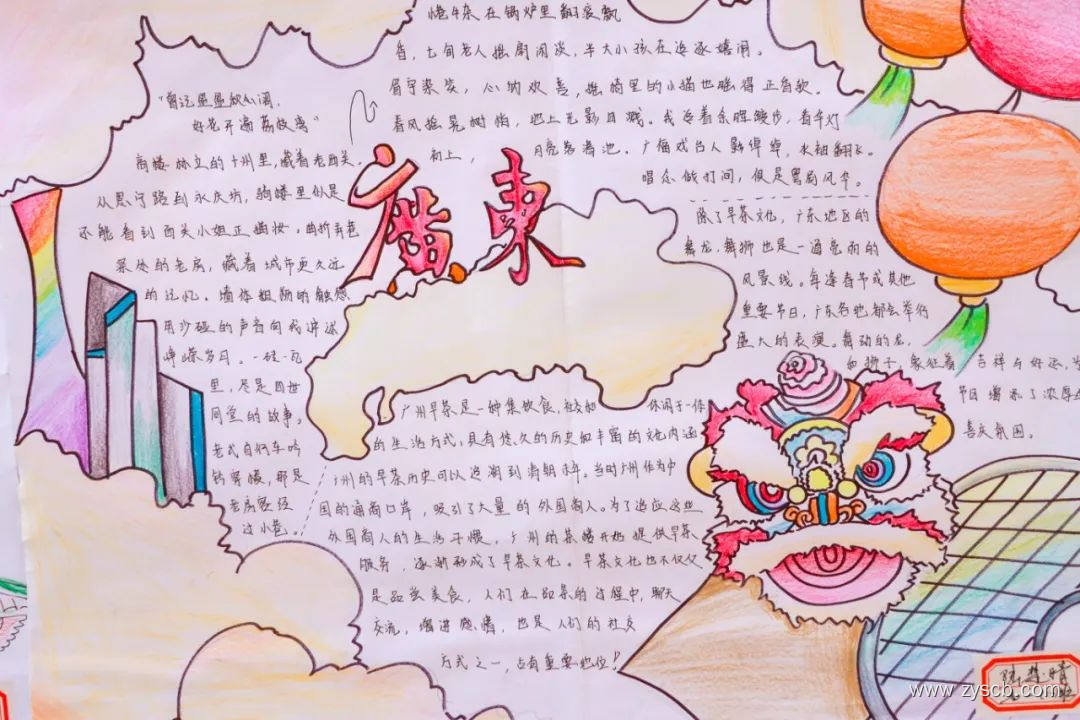 廣東
"曾记盈盈秋水阔,
好花开遍荔枝湾"
高楼林立的广州里,藏着老西关。
从恩宁路到永庆坊,骑楼里似是
还能看到西关小姐正描妆。曲折青巷
深处的老房,藏着城市更久远
的记忆。墙体粗粝的触感
用沙砾的声音向我讲述
峥嵘岁月。一砖一瓦
里,尽是四世
同堂的故事。
老式自行车吟
铃穿慢,那是
老房客经
过小巷。
牛杂在锅炉里翻滚飘
香,七旬老人摇扇闲谈,半大小孩在追逐嬉闹。
眉宇染笑,心纳欢喜,摇椅里的小猫也睡得正香软。
春风摇晃树梢,地上光影自溅。我邀着余晖缓步,看华灯
初上,月亮落满池。广福戏台人影绰绰,水袖翻飞。
唱念做打间,俱是粤韵风华。
除了早茶文化,广东地区的
舞龙、舞狮也是一道亮丽的
风景线。每逢春节或其他
重要节日,广东各地都会举行
盛大的表演。舞动的龙,
和狮子,象征着吉祥与好运,
节日增添了浓厚
喜庆氛围。
广州早茶是一种集饮食,社交和休闲于一体
的生活方式,具有悠久的历史和丰富的文化内涵
广州的早茶历史可以追溯到清朝末年。当时广州作为中
国的通商口岸,吸引了大量的外国商人。为了适应这些
外国商人的生活习惯,广州的茶楼开始提供早茶
服务,逐渐形成了早茶文化。早茶文化也不仅仅
是品尝美食,人们在品茶的过程中,聊天
交流,增进感情,也是人们的社交
方式之一,占有重要地位!
www.zyscb.com